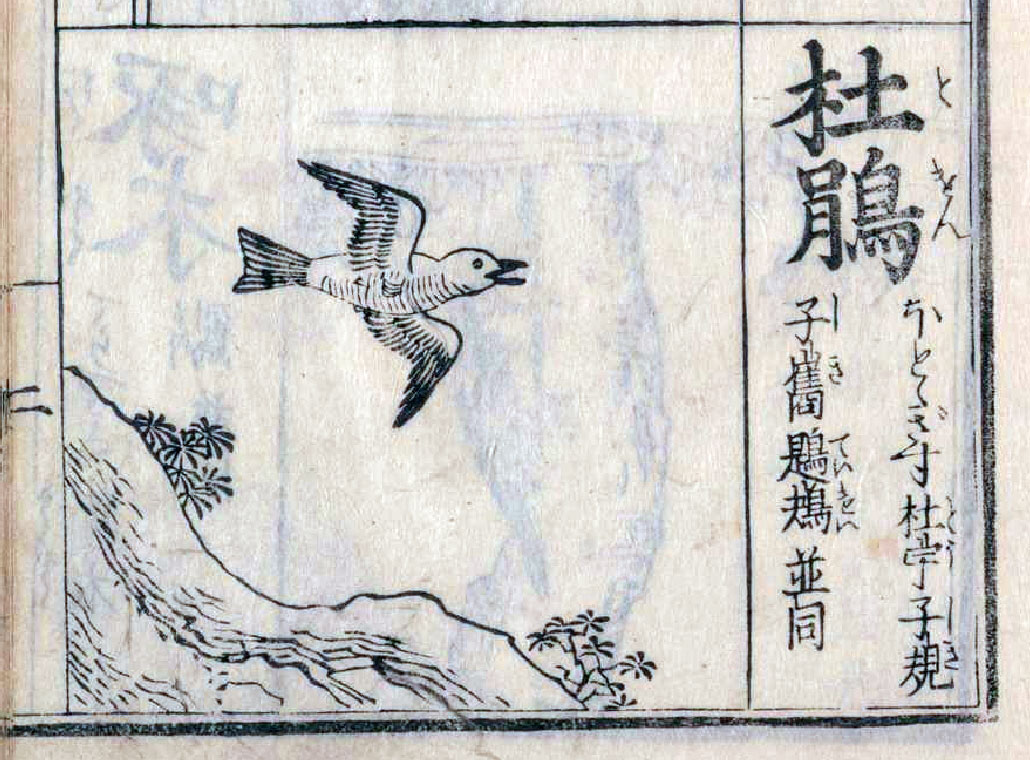 とけん
杜鵑
ほとゝぎす 杜宇 子規
とう しき
子嶲 鶗 並同
しき てい